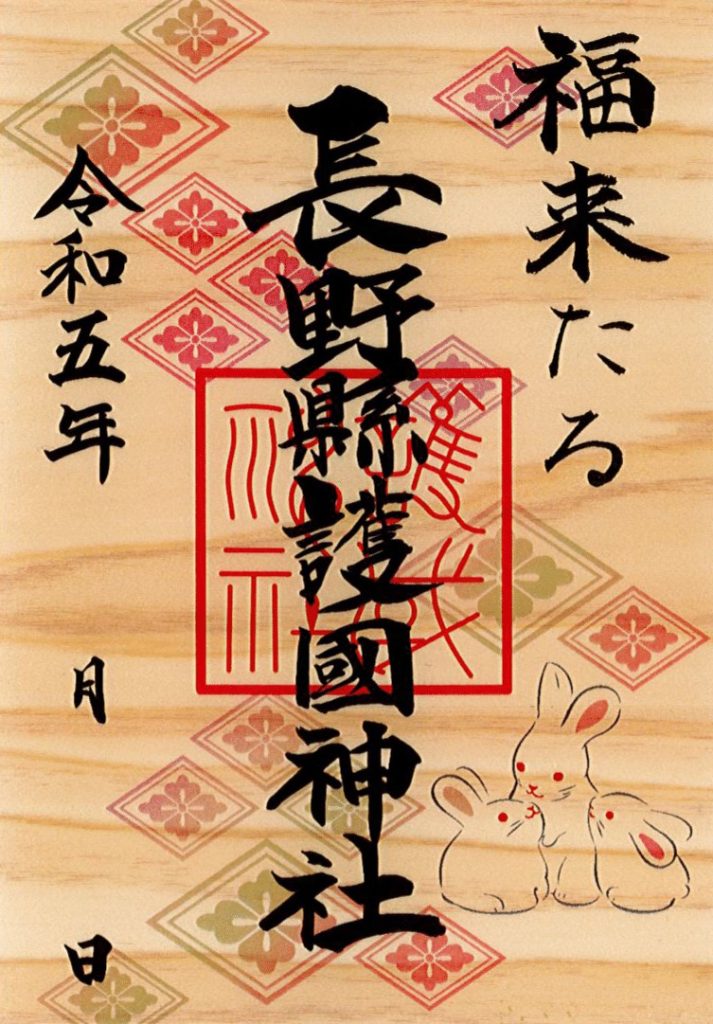 福来たる
長野縣護國神社
令和五年
月
日